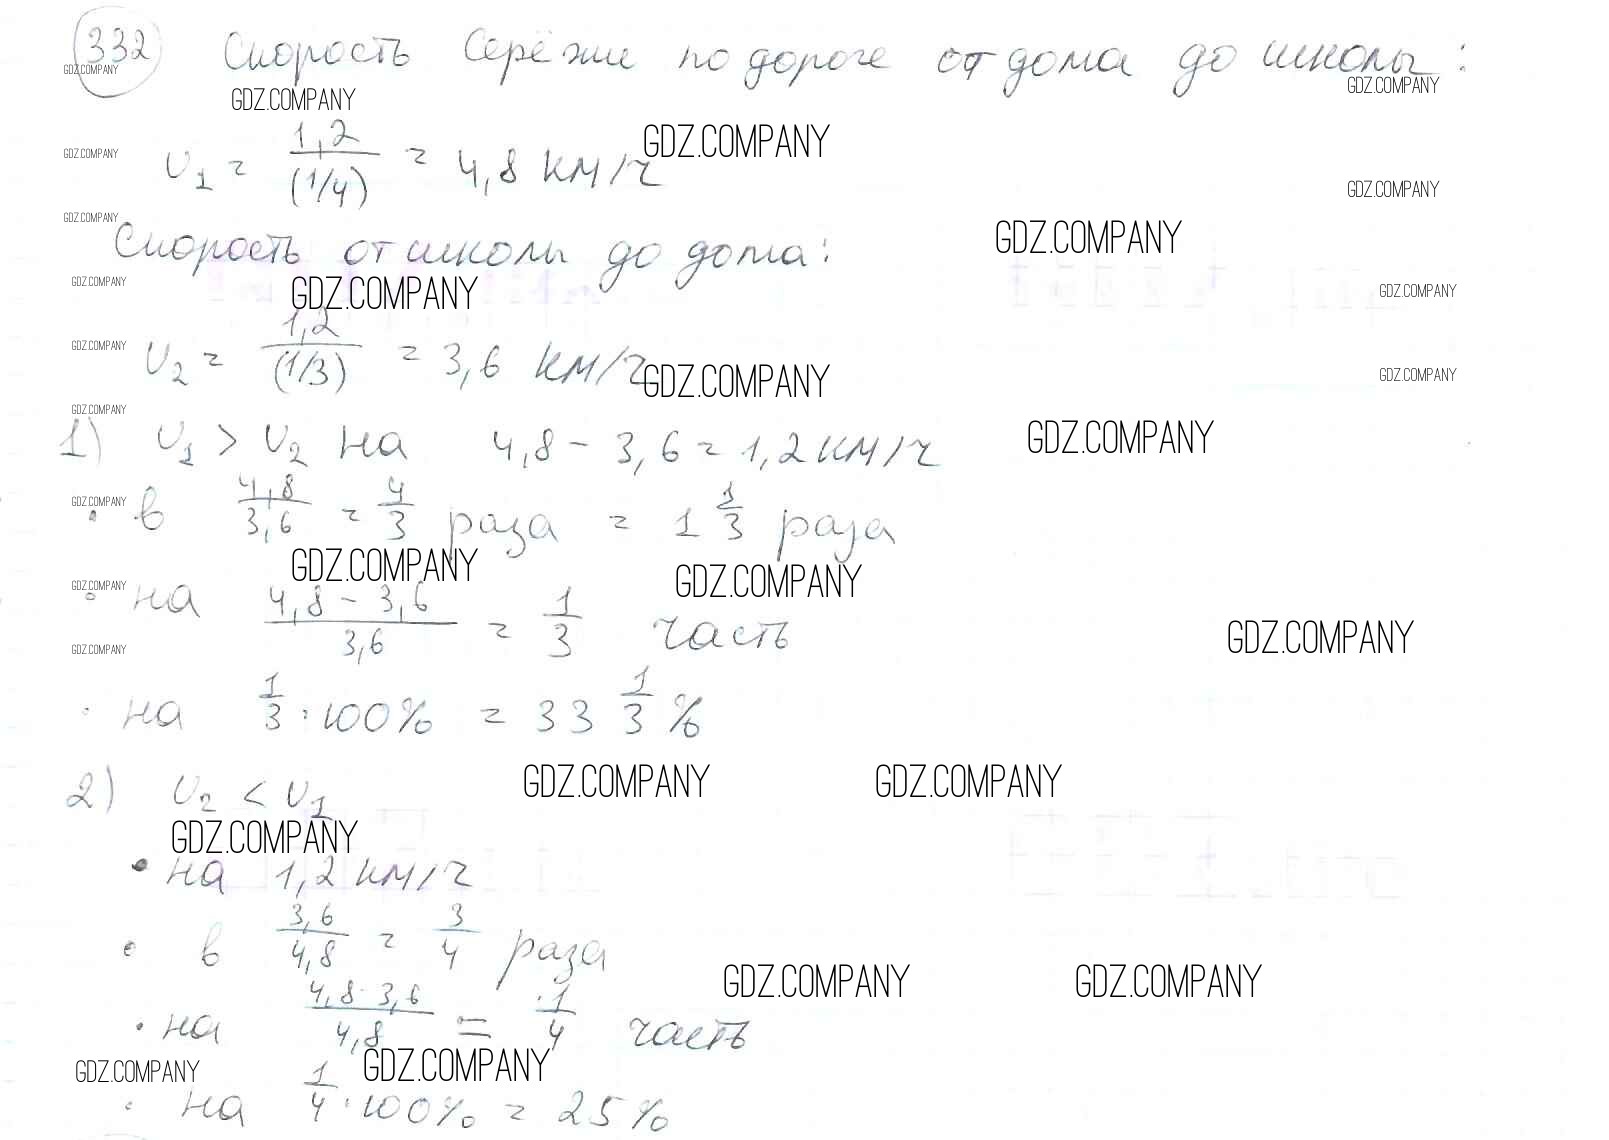 332 Скорость Серёжи по дороге от дома до школы:
GDZ.COMPANY
GDZ.COMPANY
GDZ.COMPANY
GDZ.COMPANY
GDZ.COMPANY
υ1 = 1,2/(1/4) = 4,8 км/ч
GDZ.COMPANY
GDZ.COMPANY
GDZ.COMPANY
Скорость от школы до дома:
GDZ.COMPANY
GDZ.COMPANY
GDZ.COMPANY
GDZ.COMPANY
υ2 = 1,2/(1/3) = 3,6 км/ч
GDZ.COMPANY
GDZ.COMPANY
GDZ.COMPANY
GDZ.COMPANY
1) υ1 > υ2 на 4,8 - 3,6 = 1,2 км/ч
GDZ.COMPANY
GDZ.COMPANY
• в 4,8/3,6 = 4/3 раза = 1 1/3 раза
GDZ.COMPANY
GDZ.COMPANY
GDZ.COMPANY
• на (4,8 - 3,6)/3,6 = 1/3 часть
GDZ.COMPANY
GDZ.COMPANY
• на 1/3 · 100% = 33 1/3 %
GDZ.COMPANY
GDZ.COMPANY
2) υ2 < υ1
GDZ.COMPANY
• на 1,2 км/ч
• в 3,6/4,8 = 3/4 раза
GDZ.COMPANY
GDZ.COMPANY
• на (4,8 - 3,6)/4,8 = 1/4 часть
GDZ.COMPANY
GDZ.COMPANY
• на 1/4 · 100% = 25%